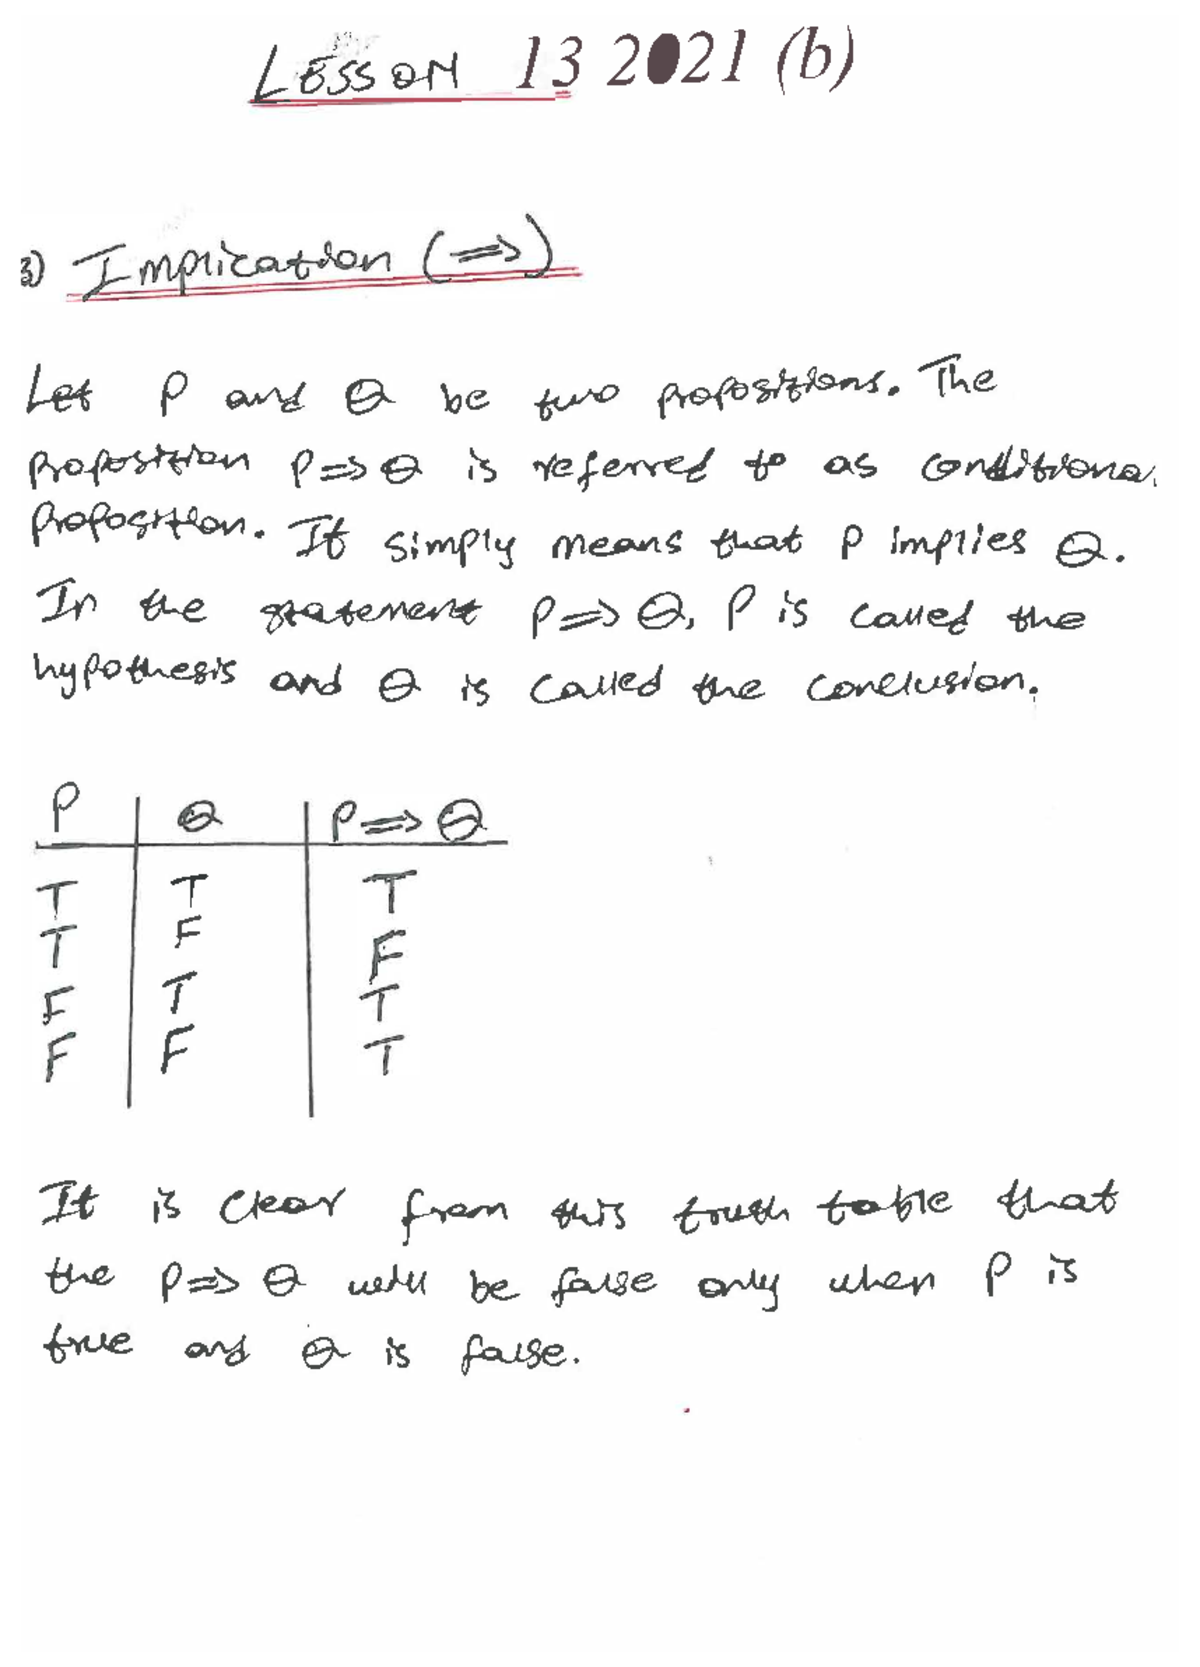 LESSON 13 2021 (b)
3) Implication (⇒)
Let P and Q be two propositions. The
proposition P⇒Q is referred to as conditiona
proposition. It simply means that P implies Q.
In the statement P⇒Q, P is called the
hypothesis and Q is called the conclusion.
P Q P⇒Q
T T T
T F F
F T T
F F T
It is clear from this truth table that
the P⇒Q will be false only when P is
true and Q is false.